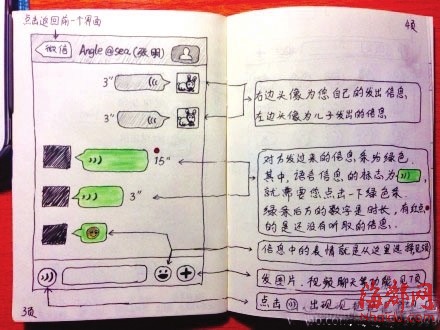 点击返回前一个界面
微信
Angle@sea(张明)
3"
3"
15"
3"
3页
4页
右边头像为您自己的发出信息,
左边头像为儿子发出的信息
对方发过来的信息条为绿色,
其中,语音信息的标志为
就需要您点击一下绿色条
绿条后方的数字是时长,有红点
的是还没有听取的信息.
信息中的表情就是从这里选择见5页
发图片、视频聊天等功能见7页
点击 出现
海峡网